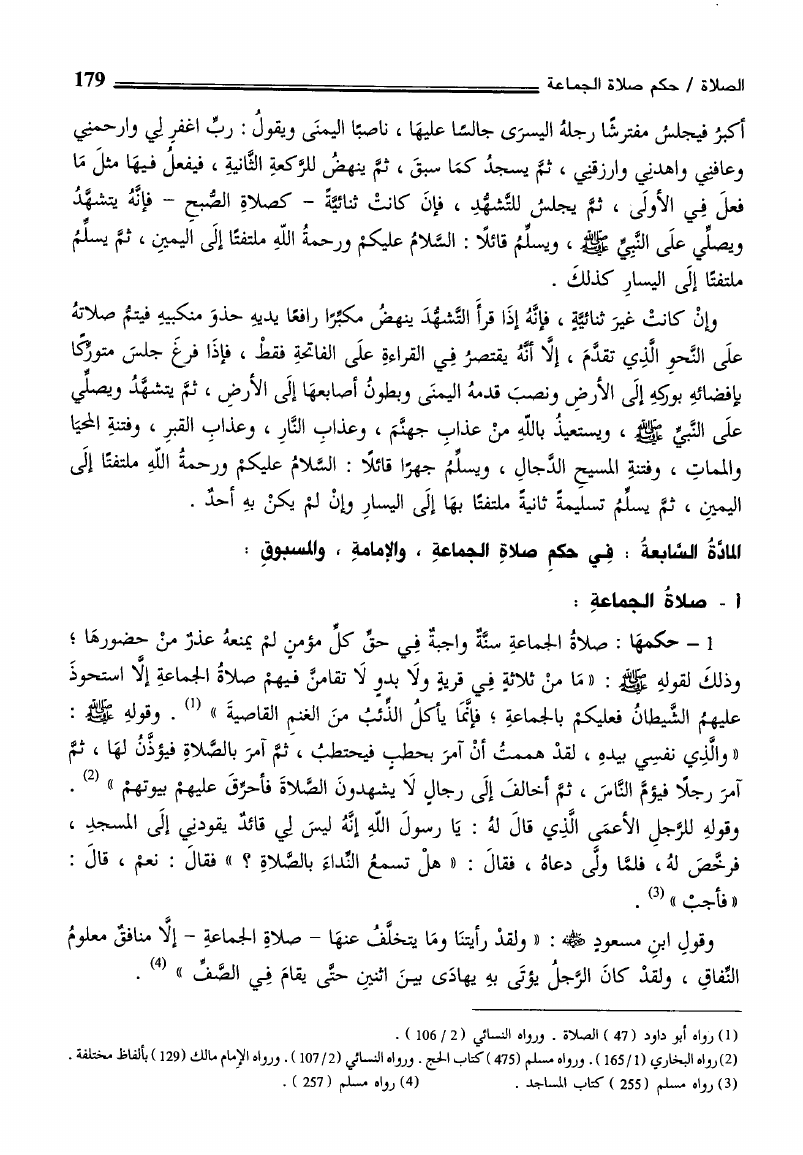 الصلاة / حكم صلاة الجماعة 179
أكبرُ فيجلسُ مفترشًا رجلهُ اليسرَى جالسًا عليهَا ، ناصبًا اليمنَى ويقولُ : ربِّ اغفرِ لِي وارحمنِي
وعافنِي واهدنِي وارزقنِي ، ثمَّ يسجدُ كمَا سبقَ ، ثمَّ ينهضُ للرَّكعةِ الثَّانيةِ ، فيفعلُ فيهَا مثلَ مَا
فعلَ فِي الأولَى ، ثمَّ يجلسُ للتَّشهُّدِ ، فإنَ كانتْ ثنائيَّةً – كصلاةِ الصُّبحِ – فإنَّهُ يتشهَّدُ
ويصلِّي علَى النَّبيِّ ﷺ ، ويسلِّمُ قائلًا : السَّلامُ عليكمْ ورحمةُ اللهِ ملتفتًا إلَى اليمينِ ، ثمَّ يسلِّمُ
ملتفتًا إلَى اليسارِ كذلكَ .
وإنْ كانتْ غيرَ ثنائيَّةٍ ، فإنَّهُ إذَا قرأَ التَّشهُّدَ ينهضُ مكبِّرًا رافعًا يديهِ حذوَ منكبيهِ فيتمُّ صلاتهُ
علَى النَّحوِ الَّذِي تقدَّمَ ، إلَّا أنَّهُ يقتصرُ فِي القراءةِ علَى الفاتحةِ فقطْ ، فإذَا فرغَ جلسَ متورِّكًا
بإفضائهِ بوركهِ إلَى الأرضِ ونصبَ قدمهُ اليمنَى وبطونُ أصابعهَا إلَى الأرضِ ، ثمَّ يتشهَّدُ ويصلِّي
علَى النَّبيِّ ﷺ ، ويستعيذُ باللهِ منْ عذابِ جهنَّمَ ، وعذابِ النَّارِ ، وعذابِ القبرِ ، وفتنةِ المحيَا
والمماتِ ، وفتنةِ المسيحِ الدَّجالِ ، ويسلِّمُ جهرًا قائلًا : السَّلامُ عليكمْ ورحمةُ اللهِ ملتفتًا إلَى
اليمينِ ، ثمَّ يسلِّمُ تسليمةً ثانيةً ملتفتًا بهَا إلَى اليسارِ وإنْ لمْ يكنْ بهِ أحدٌ .
المادَّةُ السَّابعةُ : فِي حكمِ صلاةِ الجماعةِ ، والإمامةِ ، والمسبوقِ :
أ - صلاةُ الجماعةِ :
1 – حكمهَا : صلاةُ الجماعةِ سنَّةٌ واجبةٌ فِي حقِّ كلِّ مؤمنٍ لمْ يمنعهُ عذرٌ منْ حضورهَا ؛
وذلكَ لقولهِ ﷺ : « مَا منْ ثلاثةٍ فِي قريةٍ ولَا بدوٍ لَا تقامنَّ فيهمْ صلاةُ الجماعةِ إلَّا استحوذَ
عليهمُ الشَّيطانُ فعليكمْ بالجماعةِ ؛ فإنَّمَا يأكلُ الذِّئبُ منَ الغنمِ القاصيةَ » (1) . وقولهِ ﷺ :
« والَّذِي نفسِي بيدهِ ، لقدْ هممتُ أنْ آمرَ بحطبٍ فيحتطبُ ، ثمَّ آمرَ بالصَّلاةِ فيؤذَّنُ لهَا ، ثمَّ
آمرَ رجلًا فيؤمَّ النَّاسَ ، ثمَّ أخالفَ إلَى رجالٍ لَا يشهدونَ الصَّلاةَ فأحرِّقَ عليهمْ بيوتهمْ » (2) .
وقولهِ للرَّجلِ الأعمَى الَّذِي قالَ لهُ : يَا رسولَ اللهِ إنَّهُ ليسَ لِي قائدٌ يقودنِي إلَى المسجدِ ،
فرخَّصَ لهُ ، فلمَّا ولَّى دعاهُ ، فقالَ : « هلْ تسمعُ النِّداءَ بالصَّلاةِ ؟ » فقالَ : نعمْ ، قالَ :
« فأجبْ » (3) .
وقولِ ابنِ مسعودٍ ﷺ : « ولقدْ رأيتنَا ومَا يتخلَّفُ عنهَا – صلاةِ الجماعةِ – إلَّا منافقٌ معلومُ
النِّفاقِ ، ولقدْ كانَ الرَّجلُ يؤتَى بهِ يهادَى بينَ اثنينِ حتَّى يقامَ فِي الصَّفِّ » (4) .
(1) رواه أبو داود ( 47 ) الصلاة . ورواه النسائي ( 2 / 106 ) .
(2) رواه البخاري ( 1 / 165 ) . ورواه مسلم ( 475 ) كتاب الحج . ورواه النسائي ( 2 / 107 ) . ورواه الإمام مالك ( 129 ) بألفاظ مختلفة .
(3) رواه مسلم ( 255 ) كتاب المساجد . (4) رواه مسلم ( 257 ) .